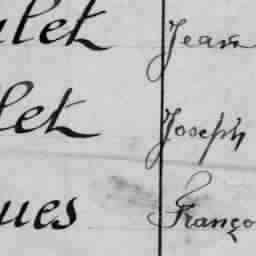 let Jean
let Joseph
ues Franço